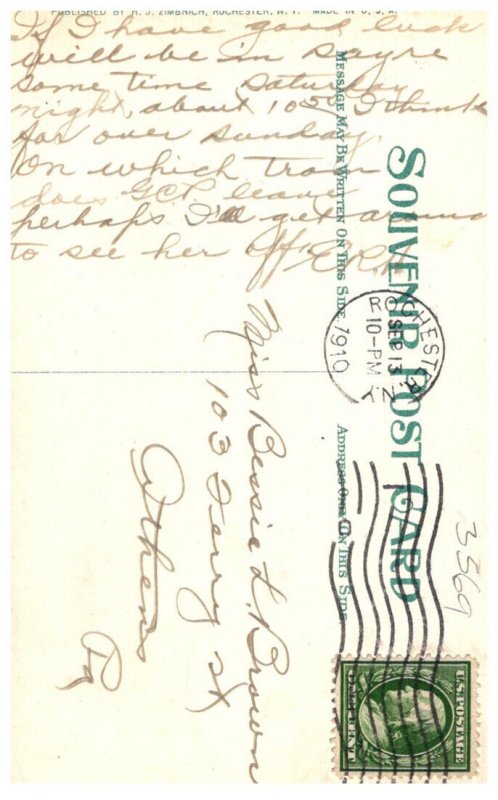 PUBLISHED BY H. J. ZIMBRICH, ROCHESTER, N. Y. MADE IN U. S. A.
If I have good luck
will be in Sayre
some time Saturday
night, about 10:50 I think
for over Sunday.
On which train
does G.C.P. leave
perhaps I'll get around
to see her off. E.R.H.
SOUVENIR POST CARD
MESSAGE MAY BE WRITTEN ON THIS SIDE
ADDRESS ONLY ON THIS SIDE
ROCHESTER, N.Y.
SEP 13
10-PM
1910
Miss Bessie L. Brown
103 Terry St
Athens
Pa
3369
U.S. POSTAGE
ONE CENT